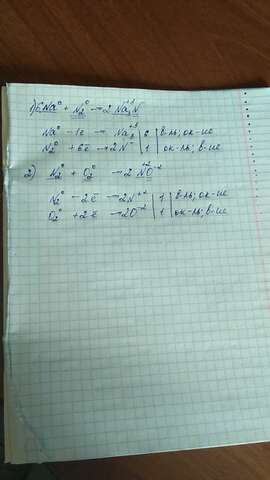 1) 6Na⁰ + N₂⁰ → 2Na₃⁺¹N
Na⁰ - 1ē → Na⁺¹ | 6 | в-ль, ок-ие
N₂⁰ + 6ē → 2N⁻ | 1 | ок-ль, в-ие
2) N₂⁰ + O₂⁰ → 2NO⁻²
N₂⁰ - 2ē → 2N⁺² | 1 | в-ль, ок-ие
O₂⁰ + 2ē → 2O⁻² | 1 | ок-ль, в-ие